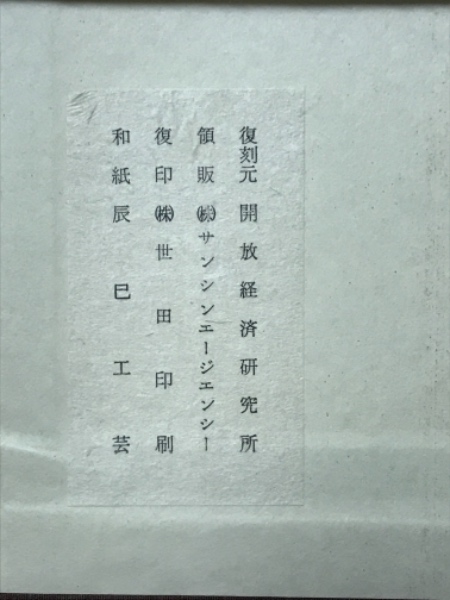 復刻元 開放経済研究所
領販 ㈱サンシンエージエンシー
復印 ㈱世田印刷
和紙 辰巳工芸